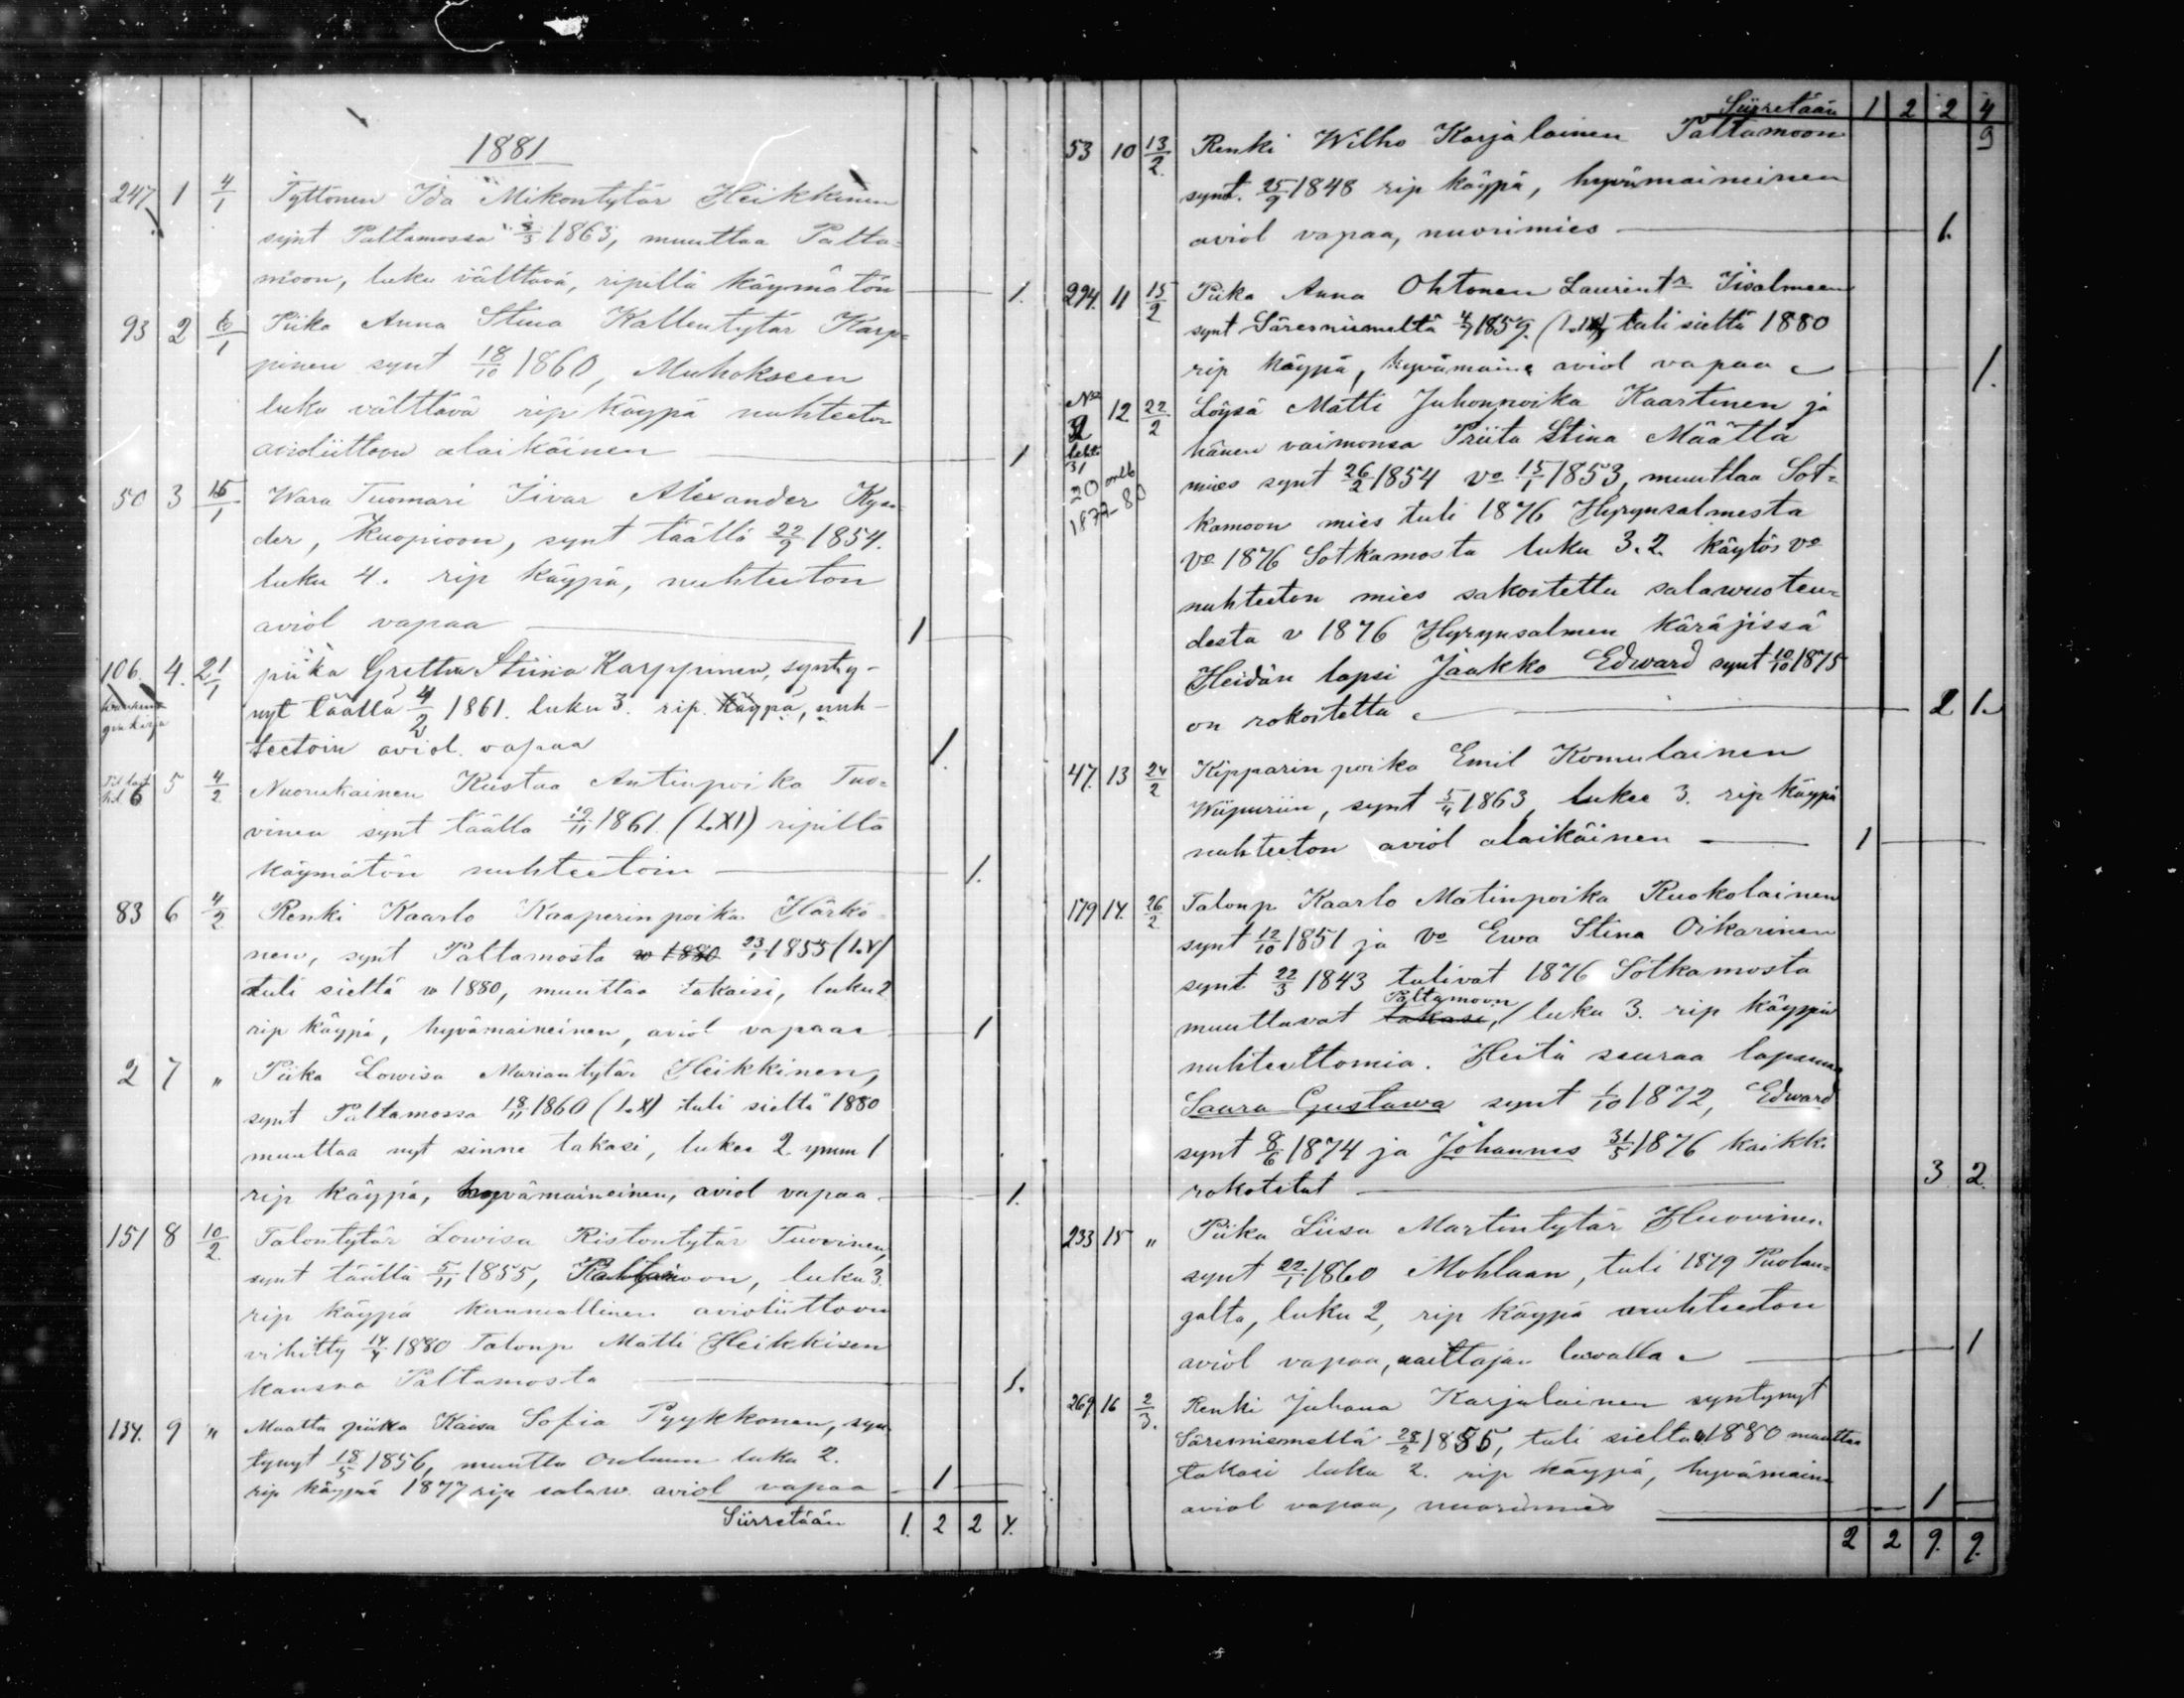 1881
247 1 4/1 Tyttönen Ida Mikontytär Heikkinen
synt Paltamossa 3/3 1863, muuttaa Palta=
moon, luku välttävä, ripillä käymätön 1.
93 2 6/1 Piika Anna Stina Kallentytär Karp=
pinen synt 18/10 1860, Muhokseen
luku välttävä rip käypä nuhteeton
avioliittoon alaikäinen 1
50 3 15/1 Wara Tuomari Iivar Alexander
der, Kuopioon, synt täällä 22/9 1854.
luku 4. rip käypä, nuhteeton
aviol vapaa 1
106. 4. 21/1 piika Gretha Stiina Karppinen, synty-
nyt täällä 4/2 1861. luku 3. rip. käypä, nuh-
teetoin aviol. vapaa 1.
6 5 4/2 Nuorukainen Kustaa Antinpoika Tuo=
vinen synt täällä 19/11 1861. (L.XI) ripillä
käymätön nuhteetoin 1.
83 6 4/2 Renki Kaarlo Kaaperinpoika Härkö=
nen, synt Paltamosta w 1880 23/1 1855 (L.V)
tuli sieltä w 1880, muuttaa takaisi, luku 2
rip käypä, hyvämaineinen, aviol vapaa 1
2 7 " Piika Lowisa Mariantytär Heikkinen,
synt Paltamossa 18/11 1860 (L.X) tuli sieltä 1880
muuttaa nyt sinne takasi, lukee 2 ymm 1
rip käypä, hyvämaineinen, aviol vapaa 1.
151 8 10/2 Talontytär Lowisa Ristontytär Tuovinen,
synt täällä 5/11 1855, Paltamoon, luku 3.
rip käypä kunniallinen avioliittoon
vihitty 14/4 1880 Talonp Matti Heikkisen
kanssa Paltamosta 1.
134. 9 " Maatta piika Kaisa Sofia Pyykkönen, syn
tynyt 18/5 1856, muutta Ouluun luku 2.
rip käypä 1877 rip salaw. aviol vapaa 1
Siirretään 1. 2 2 4.
Siirretään 1 2 2 4
53 10 13/2. Renki Wilho Karjalainen Paltamoon 9
synt. 25/9 1848 rip käypä, hyvämaineinen
aviol vapaa, nuorimies 1.
294. 11 15/2 Piika Anna Ohtonen Laurint:r Iisalmeen
synt Säresniemeltä 4/7 1859. tuli sieltä 1880
rip käypä, hyvämaine aviol vapaa 1.
12 22/2 Löysä Matti Juhonpoika Kaartinen ja
lehti
31
20
1877-80
hänen vaimonsa Priita Stina Määttä
mies synt 26/2 1854 vo 15/1 1853, muuttaa Sot=
kamoon mies tuli 1876 Hyrynsalmesta
vo 1876 Sotkamosta luku 3.2. käytös vo
nuhteeton mies sakoitettu salawuoteu=
desta v 1876 Hyrynsalmen käräjissä
Heidän lapsi Jaakko Edward synt 10/10 1875
on rokoitettu 2 1.
47. 13 24/2 Kipparin poika Emil Komulainen
Wiipuriin, synt 5/4 1863, lukee 3. rip käypä
nuhteeton aviol alaikäinen 1
179 14. 26/2 Talonp Kaarlo Matinpoika Ruokolainen
synt 12/10 1851 ja vo Ewa Stina Oikarinen
synt 22/3 1843 tulivat 1876 Sotkamosta
Paltamoon
muuttavat takasi, luku 3. rip käypiä
nuhteettomia. Heitä seuraa lapsensa
Saura Gustawa synt 1/10 1872, Edward
synt 8/6 1874 ja Johannes 31/5 1876 kaikki
rokotetut 3 2.
233 15 " Piika Liisa Martintytär Huovinen
synt 22/1 1860 Mohlaan, tuli 1879 Puolan=
galta, luku 2, rip käypä nuhteeton
aviol vapaa, naittajan luvalla 1
269 16 2/3. Renki Juhana Karjalainen syntynyt
Säresniemellä 28/2 1855, tuli sieltä 1880 muuttaa
takasi luku 2. rip käypä, hyvämaine
aviol vapaa, nuorimies 1
2 2 9. 9.